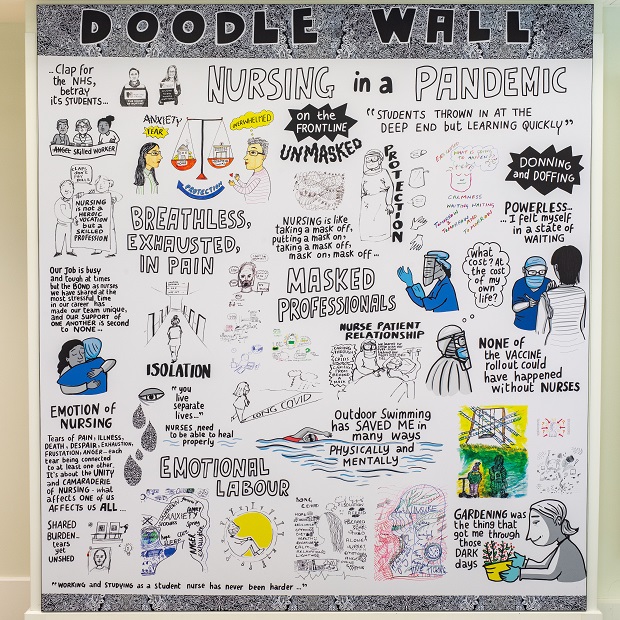 DOODLE WALL
NURSING in a PANDEMIC
..Clap for
the NHS,
betray
its STUDENTS...
ANGEL skilled WORKER
CLAPS
DON'T
PAY
BILLS
NURSING
is not a
HEROIC
VOCATION
but a
SKILLED
PROFESSION
ANXIETY
FEAR
OVERWHELMED
PROTECTION
on the
FRONTLINE
UNMASKED
"STUDENTS THROWN IN AT THE
DEEP END but LEARNING QUICKLY"
PROTECTION
CALMNESS
WAITING WAITING
DONNING
and DOFFING
POWERLESS...
...I felt myself
in a state of
WAITING
BREATHLESS,
EXHAUSTED,
IN PAIN
NURSING is like
taking a mask off,
putting a mask on,
taking a mask off,
mask on, mask off...
OUR JOB is busy
and tough at times
but the BOND as nurses
we have shared at the
most stressful time
in our career has
made our team unique,
and OUR SUPPORT of
ONE ANOTHER is second
to NONE...
MASKED
PROFESSIONALS
What
cost? At
the cost
of my
own
life?
ISOLATION
NURSE PATIENT
RELATIONSHIP
NONE of
the VACCINE
rollout could
have happened
without NURSES
"you
live
separate
lives..."
NURSES need
to be able to heal
properly
LONG COVID
EMOTION of
NURSING
Tears of PAIN, ILLNESS,
DEATH, DESPAIR, EXHAUSTION,
FRUSTATION, ANGER - each
tear being connected
to at least one other.
It's about the UNITY
and CAMARADERIE
of NURSING - what
AFFECTS ONE of US
AFFECTS US ALL...
Outdoor Swimming
has SAVED ME in
many ways
PHYSICALLY and
MENTALLY
EMOTIONAL
LABOUR
SHARED
BURDEN..
tears
yet
UNSHED
ANXIETY
GARDENING was
the thing that
got me through
those
DARK
days
"WORKING and STUDYING as a student nurse has never been harder..."